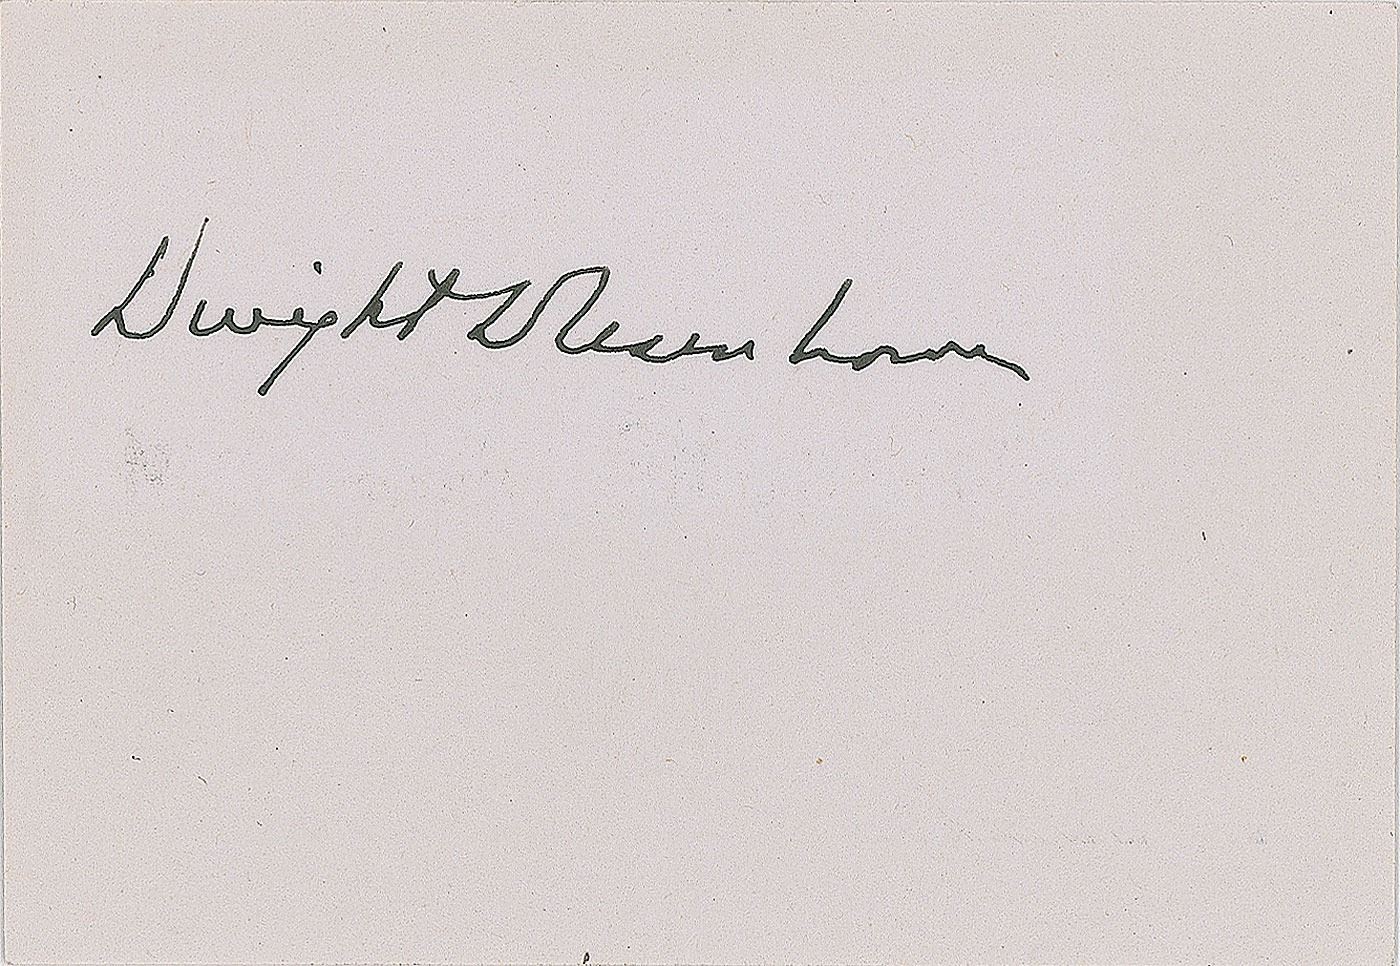 Dwight D Eisenhower